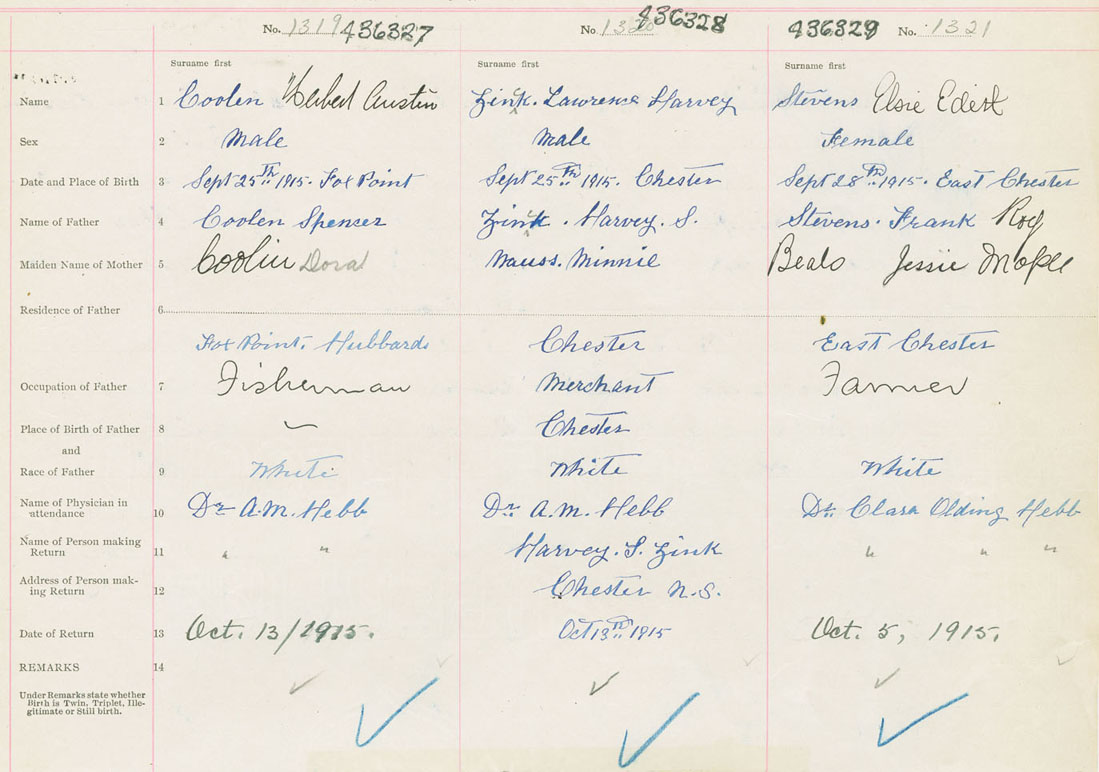 No. 1319 436327 No. 13 436328 436329 No. 1321
Surname first Surname first Surname first
Name 1 Coolen Herbert Austin Zink. Lawrence Harvey Stevens Elsie Edith
Sex 2 Male Male Female
Date and Place of Birth 3 Sept 25th 1915. Fox Point Sept 25th 1915. Chester Sept 28th 1915. East Chester
Name of Father 4 Coolen Spencer Zink. Harvey. S. Stevens. Frank Roy
Maiden Name of Mother 5 Coolin Dora Nauss. Minnie Beals Jessie
Residence of Father 6
Fox Point. Hubbards Chester East Chester
Occupation of Father 7 Fisherman Merchant Farmer
Place of Birth of Father 8 Chester
and
Race of Father 9 White White White
Name of Physician in
attendance 10 Dr A.M. Hebb Dr. A.M. Hebb Dr. Clara Olding Hebb
Name of Person making
Return 11 " " Harvey. S. Zink " " "
Address of Person mak-
ing Return 12 Chester N.S.
Date of Return 13 Oct. 13/1915. Oct 13th 1915 Oct. 5, 1915.
REMARKS 14
Under Remarks state whether
Birth is Twin, Triplet, Ille-
gitimate or Still birth.